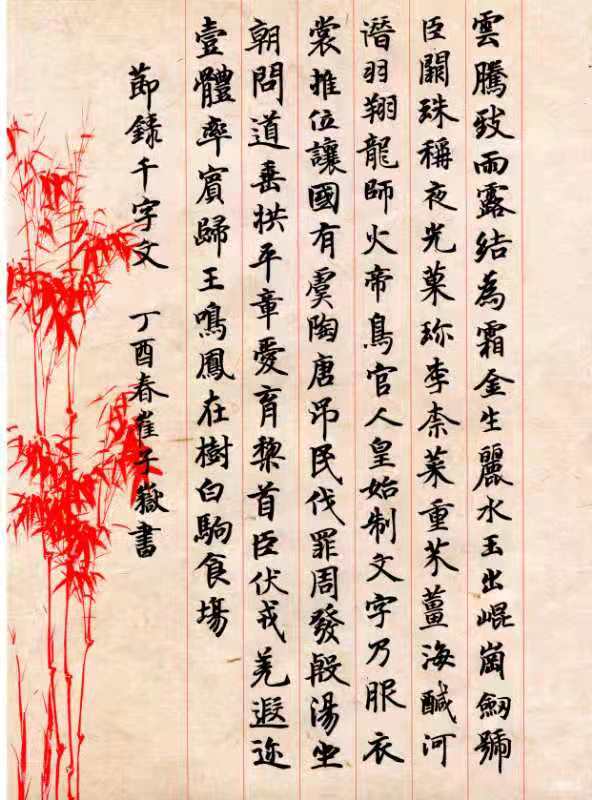 雲騰致雨露結為霜金生麗水玉出崐崗劒號
巨闕珠稱夜光菓珎李柰菜重芥薑海鹹河
潛羽翔龍師火帝鳥官人皇始制文字乃服衣
裳推位讓國有虞陶唐吊民伐罪周發殷湯坐
朝問道垂拱平章愛育黎首臣伏戎羌遐迩
壹體率賓歸王鳴鳳在樹白駒食場
節錄千字文 丁酉春崔子嶽書